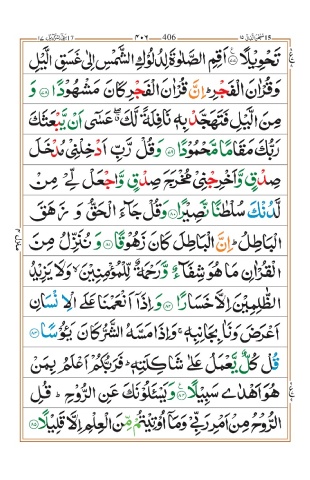 406 ۴۰۶
تَحْوِيْلًا ﴿۷۷﴾ اَقِمِ الصَّلٰوةَ لِدُلُوْكِ الشَّمْسِ اِلٰى غَسَقِ الَّيْلِ
وَقُرْاٰنَ الْفَجْرِ ؕ اِنَّ قُرْاٰنَ الْفَجْرِ كَانَ مَشْهُوْدًا ﴿۷۸﴾ وَ
مِنَ الَّيْلِ فَتَهَجَّدْ بِهٖ نَافِلَةً لَّكَ ۖ عَسٰٓى اَنْ يَّبْعَثَكَ
رَبُّكَ مَقَامًا مَّحْمُوْدًا ﴿۷۹﴾ وَقُلْ رَّبِّ اَدْخِلْنِيْ مُدْخَلَ
صِدْقٍ وَّاَخْرِجْنِيْ مُخْرَجَ صِدْقٍ وَّاجْعَلْ لِّيْ مِنْ
لَّدُنْكَ سُلْطٰنًا نَّصِيْرًا ﴿۸۰﴾ وَقُلْ جَآءَ الْحَقُّ وَزَهَقَ
الْبَاطِلُ ؕ اِنَّ الْبَاطِلَ كَانَ زَهُوْقًا ﴿۸۱﴾ وَنُنَزِّلُ مِنَ
الْقُرْاٰنِ مَا هُوَ شِفَآءٌ وَّرَحْمَةٌ لِّلْمُؤْمِنِيْنَ ۙ وَلَا يَزِيْدُ
الظّٰلِمِيْنَ اِلَّا خَسَارًا ﴿۸۲﴾ وَاِذَآ اَنْعَمْنَا عَلَى الْاِنْسَانِ
اَعْرَضَ وَنَاٰ بِجَانِبِهٖ ۚ وَاِذَا مَسَّهُ الشَّرُّ كَانَ يَـُٔوْسًا ﴿۸۳﴾
قُلْ كُلٌّ يَّعْمَلُ عَلٰى شَاكِلَتِهٖ ؕ فَرَبُّكُمْ اَعْلَمُ بِمَنْ
هُوَ اَهْدٰى سَبِيْلًا ﴿۸۴﴾ وَيَسْـَٔلُوْنَكَ عَنِ الرُّوْحِ ؕ قُلِ
الرُّوْحُ مِنْ اَمْرِ رَبِّيْ وَمَآ اُوْتِيْتُمْ مِّنَ الْعِلْمِ اِلَّا قَلِيْلًا ﴿۸۵﴾